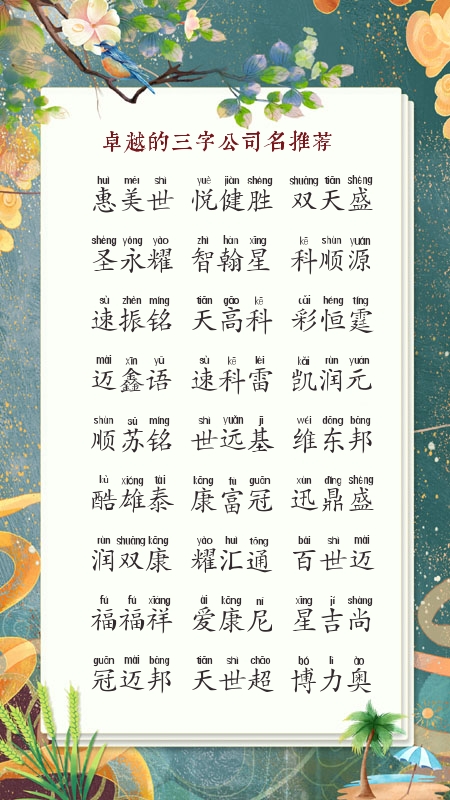 卓越的三字公司名推荐
huì měi shì yuè jiàn shèng shuāng tiān shèng
惠美世 悦健胜 双天盛
shèng yǒng yào zhì hàn xīng kē shùn yuán
圣永耀 智翰星 科顺源
sù zhèn míng tiān gāo kē cǎi héng tíng
速振铭 天高科 彩恒霆
mài xīn yǔ sù kē léi kǎi rùn yuán
迈鑫语 速科雷 凯润元
shùn sū míng shì yuǎn jī wéi dōng bāng
顺苏铭 世远基 维东邦
kù xióng tài kāng fù guān xùn dǐng shèng
酷雄泰 康富冠 迅鼎盛
rùn shuāng kāng yào huì tōng bǎi shì mài
润双康 耀汇通 百世迈
fú fú xiáng ài kāng ní xīng jí shàng
福福祥 爱康尼 星吉尚
guān mài bāng tiān shì chāo bó lì ào
冠迈邦 天世超 博力奥